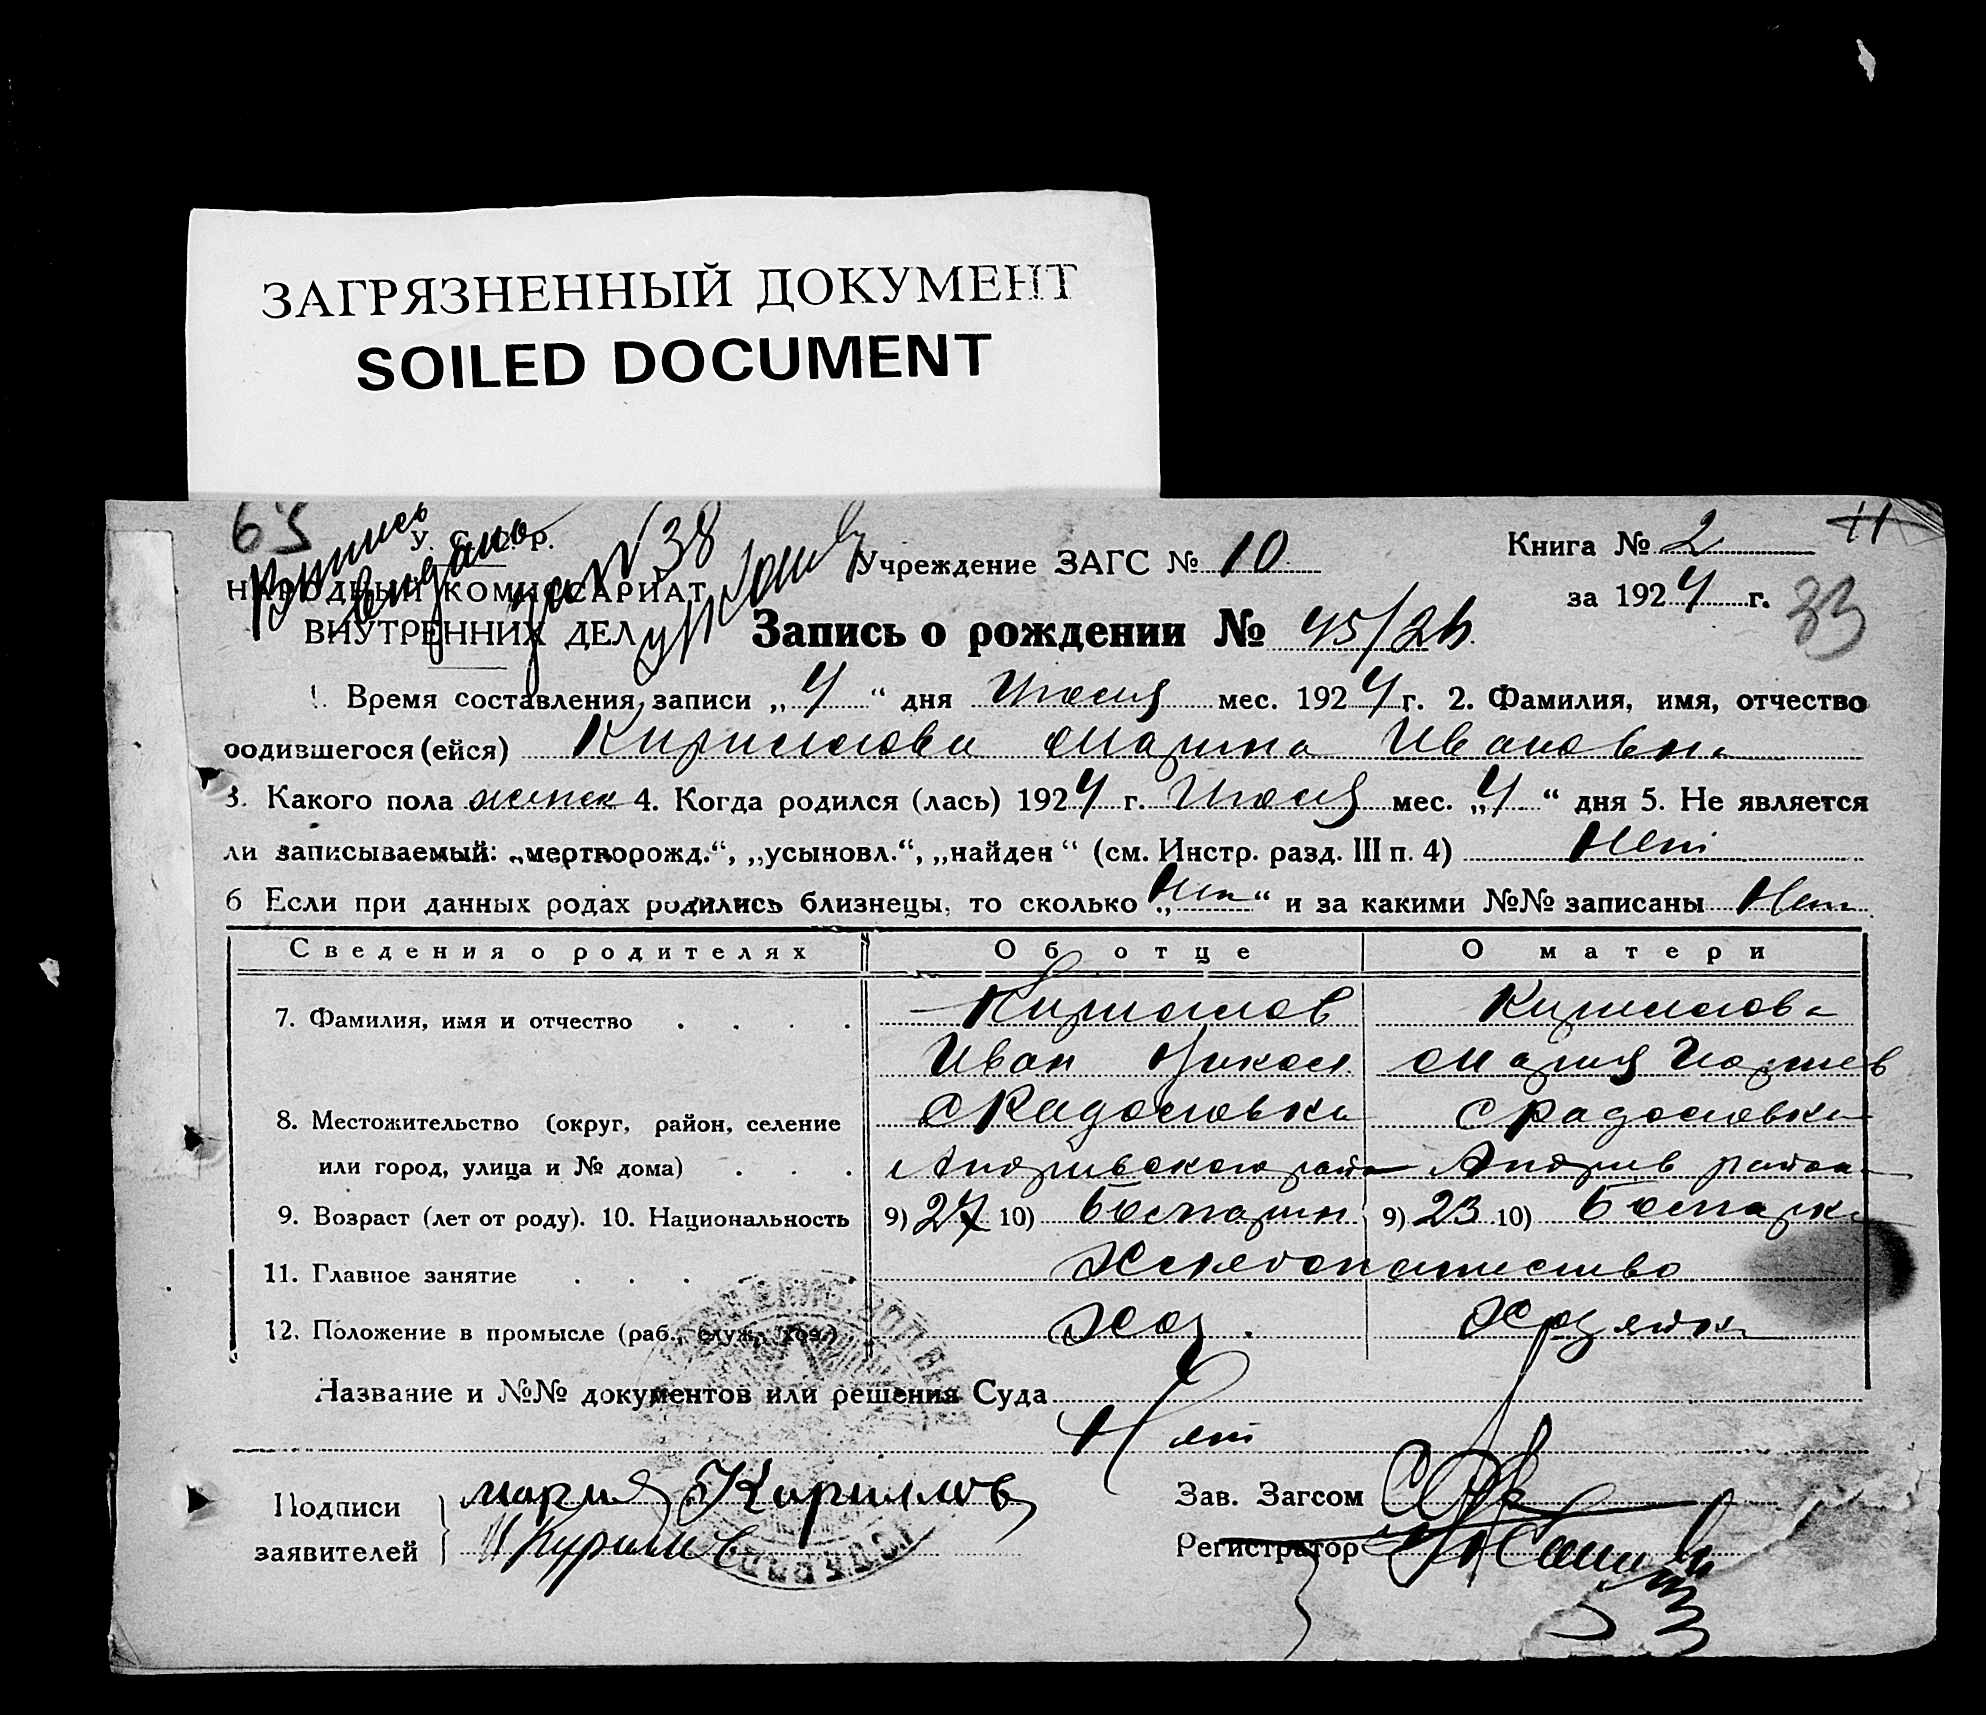 ЗАГРЯЗНЕННЫЙ ДОКУМЕНТ
SOILED DOCUMENT
63
Выпись
выдано
за № 38
У. С. С. Р.
НАРОДНЫЙ КОМИССАРИАТ
ВНУТРЕННИХ ДЕЛ
Учреждение ЗАГС № 10
Книга № 2
11
за 1924 г.
33
Запись о рождении № 45/26
1. Время составления записи „4“ дня Июля мес. 1924 г. 2. Фамилия, имя, отчество
родившегося (ейся) Кириллова Марина Ивановна
3. Какого пола женск 4. Когда родился (лась) 1924 г. Июля мес. „4“ дня 5. Не является
ли записываемый: „мертворожд.“, „усыновл.“, „найден“ (см. Инстр. разд. III п. 4) Нет
6 Если при данных родах родились близнецы, то сколько „Нет“ и за какими №№ записаны Нет
Сведения о родителях Об отце О матери
7. Фамилия, имя и отчество Кириллов Кириллова
Иван Никол Мария
8. Местожительство (округ, район, селение с Радоловка с Радоловка
или город, улица и № дома) Андриевского район Андриев района
9. Возраст (лет от роду). 10. Национальность 9) 27 10) Болгарин 9) 23 10) Болгарка
11. Главное занятие Хлебопашество
12. Положение в промысле (раб., служ., хоз.) Хоз. Хозяйка
Название и №№ документов или решения Суда
Нет
Подписи
заявителей
мария Кирилов
И Кирилов
Зав. Загсом
Регистратор